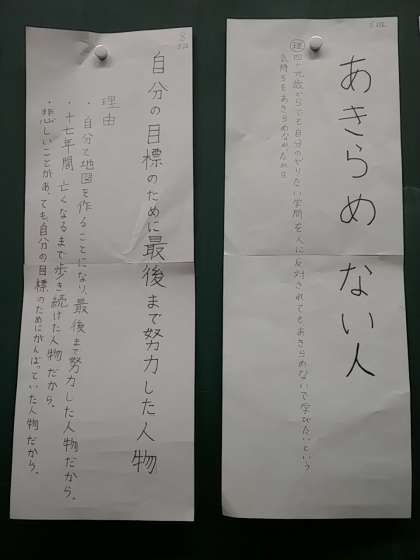 あきらめない人
理 四十九歳からでも自分のやりたい学問を人に反対されてもあきらめないで学びたいという
気持ちをあきらめなかったから
自分の目標のために最後まで努力した人物
理由
・自分で地図を作ることになり、最後まで努力した人物だから。
・十七年間、亡くなるまで歩き続けた人物だから。
・悲しいことがあっても、自分の目標のためにがんばっていた人物だから。